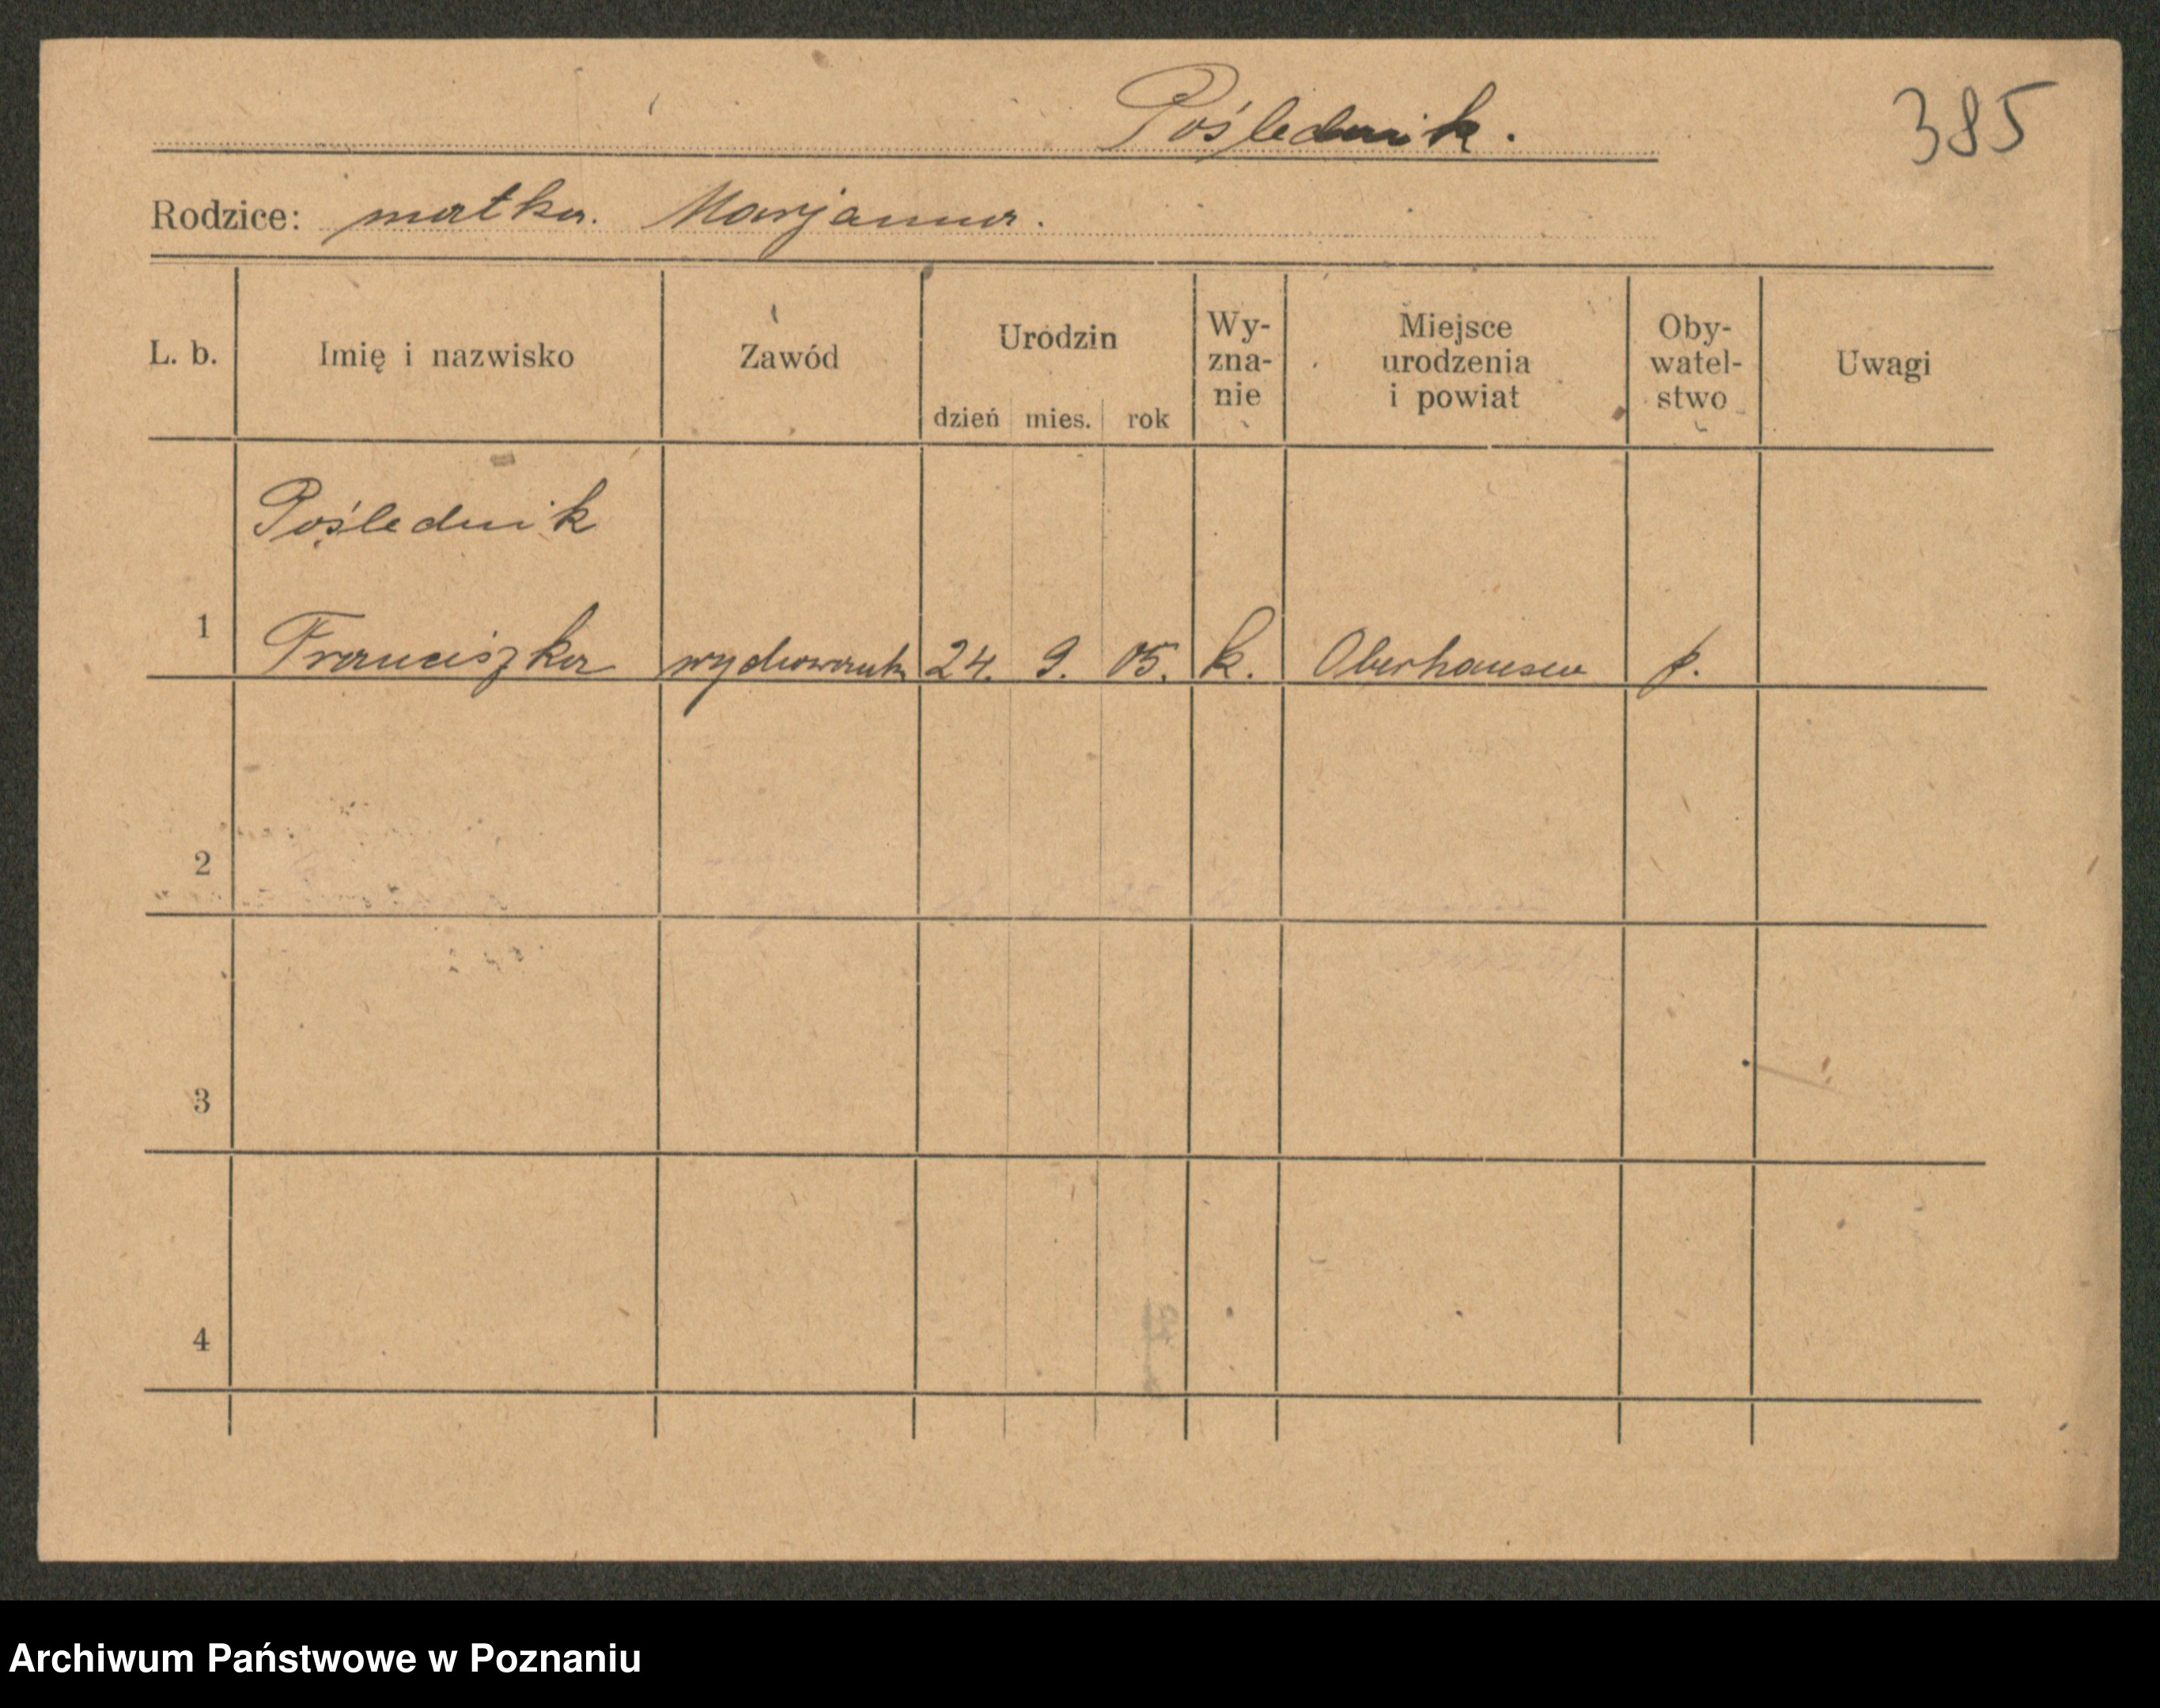 Poślednik.
385
Rodzice: matka. Marjanna.
L. b. Imię i nazwisko Zawód Urodzin dzień mies. rok Wy-zna-nie Miejsce urodzenia i powiat Oby-watel-stwo Uwagi
Poślednik
1 Franciszka wychowank 24. 9. 05. k. Oberhausen p.
2
3
4
Archiwum Państwowe w Poznaniu